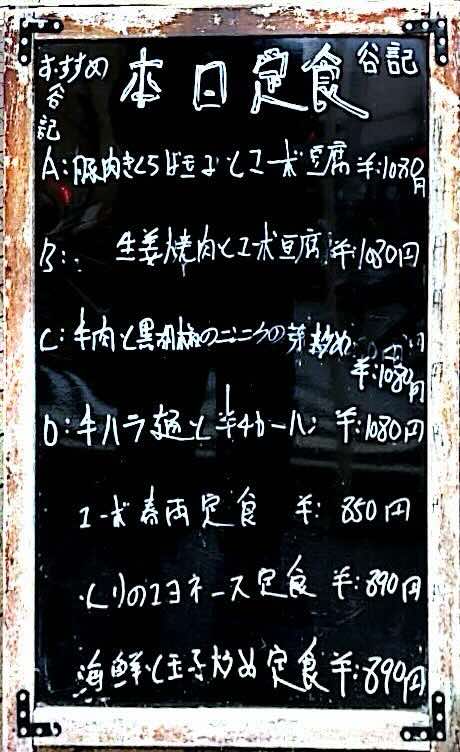 おすすめ 本日定食 谷記
谷記
A:豚肉きくらげ玉子とマーボ豆腐 ¥:1080円
B: 生姜焼肉とマーボ豆腐 ¥:1080円
C:牛肉と黒胡椒のニンニクの芽炒め
¥:1080円
D:牛バラ麺と半チャーハン ¥:1080円
マーボ春雨定食 ¥:850円
のマヨネーズ定食 ¥:890円
海鮮と玉子炒め定食 ¥:890円